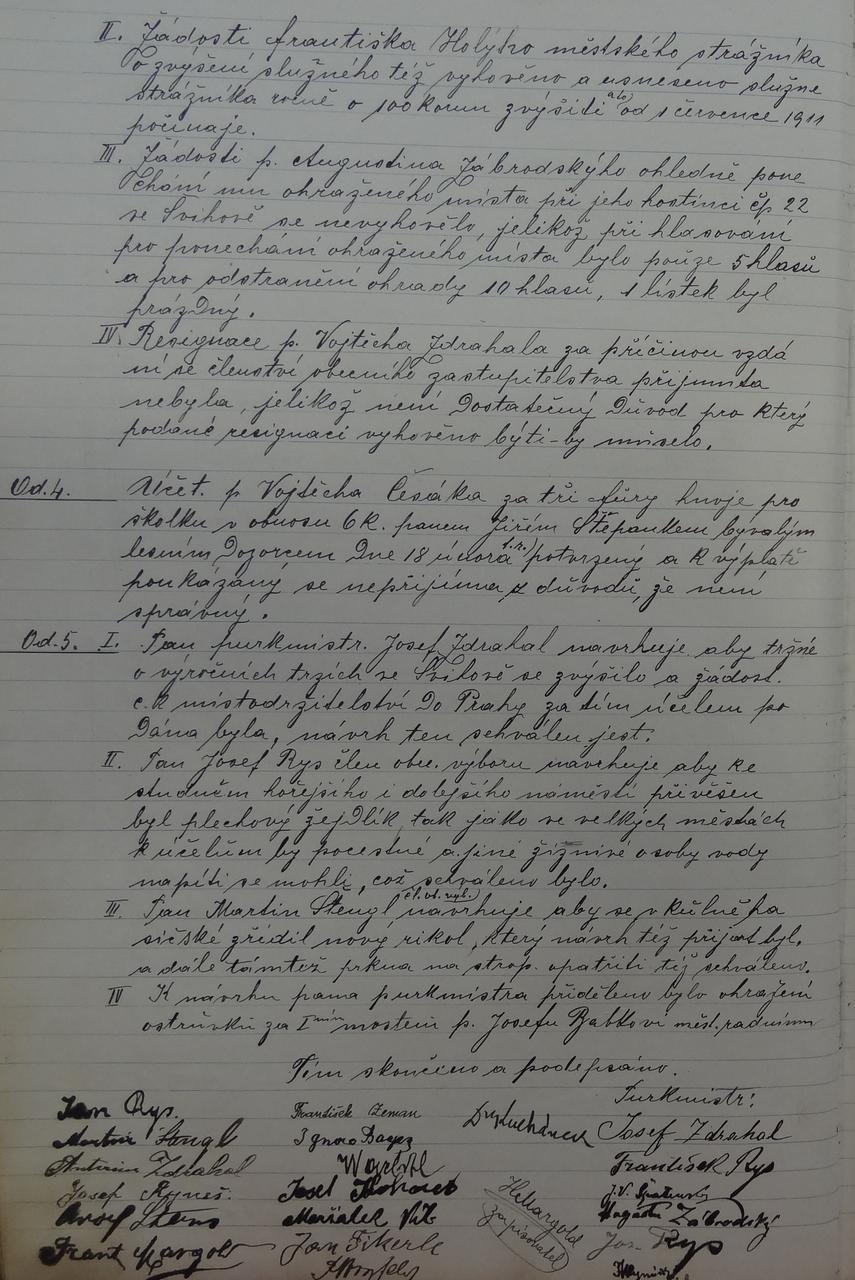 II. Žádosti Františka Holýho městského strážníka
o zvýšení služného též vyhověno a usneseno služne
strážníka ročně o 100 korun zvýšiti a to od 1 července 1911
počínaje.
III. Žádosti p. Augustina Zábrodskýho ohledně pone
chání mu ohraženého místa při jeho hostinci čp 22
ve Švihově se nevyhovělo, jelikož při hlasování
pro ponechání ohraženého místa bylo pouze 5 hlasů
a pro odstranění ohrady 10 hlasů, 1 lístek byl
prázdný.
IV. Resignace p. Vojtěcha Zdrahala za příčinou vzdá
ní se členství obecního zastupitelstva přijmuta
nebyla, jelikož není dostatečný důvod pro který
podané resignaci vyhověno býti-by muselo.
Od.4. Účet. p Vojtěcha Česáka za tři fůry hnoje pro
školku v obnosu 6 K. panem Jiřím Štěpankem bývalým
lesním dozorcem dne 18 února t.r. potvrzený a k výplatě
poukázaný se nepřijíma z důvodů, že není
správný.
Od.5. I. Pan purkmistr. Josef Zdrahal navrhuje aby tržné
o výročních trzích ve Švihově se zvýšilo a žádost.
c.k místodržitelství do Prahy za tím účelem po
dána byla, návrh ten schválen jest.
II. Pan Josef Rys člen obec. výboru navrhuje aby ke
studnem hořejšího i dolejšího náměstí přivěšen
byl plechový žejdlík, tak jako ve velkých městách
k účelům by pocestné a jiné žíznivé osoby vody
napíti se mohli, což schváleno bylo.
III. Pan Martin Štengl (čl. ob. vyb.) navrhuje aby se v kůlně ha
sičské zřídil nový rikol, který návrh též přijat byl.
a dále tamtéž prkna na strop. opatřiti též schváleno.
IV K návrhu pana purkmistra přiděleno bylo ohražení
ostrůvků za I mostem p. Josefu Babkovi měst. radnímu
Tím skončeno a podepsáno.
Purkmistr:
Jan Rys. František Zeman Josef Zdrahal
Martin Štengl František Rys
Antonín Zdrahal
Josef
Augustin Zábrodský
Frant Margold Jan Fikerle Jos. Rys
zapisovatel